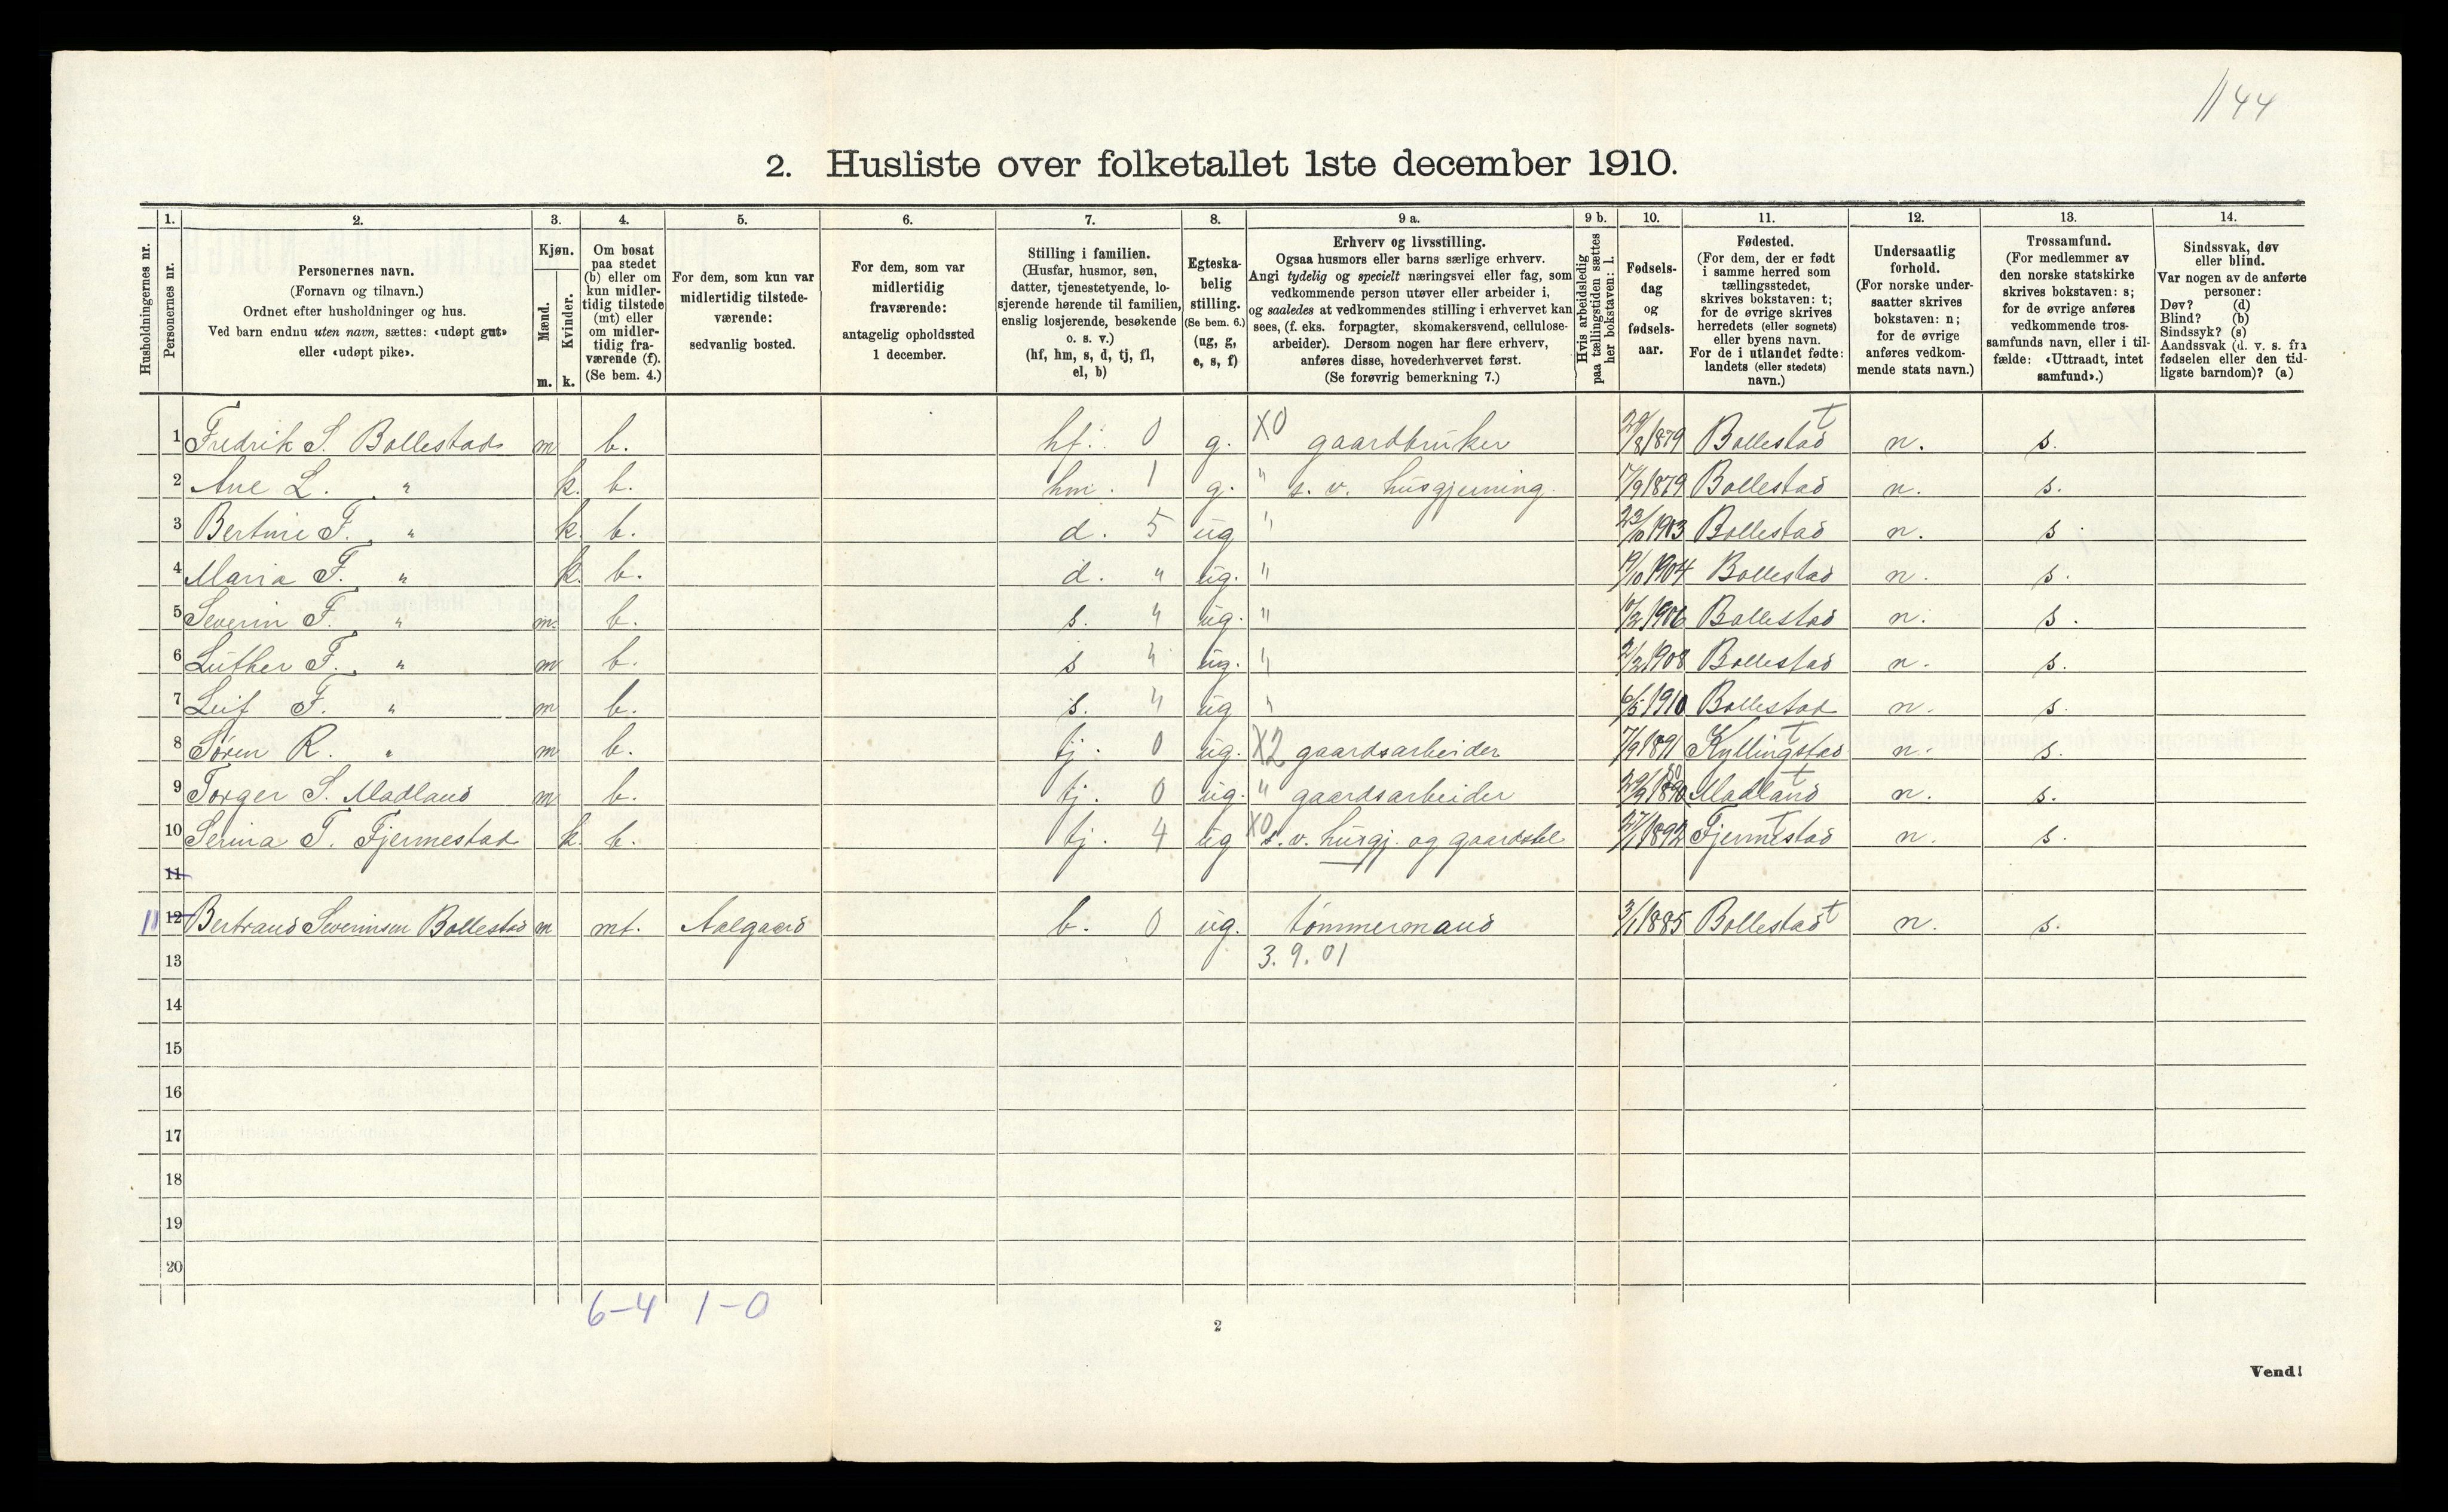 1144
2. Husliste over folketallet 1ste december 1910.
1. 2. 3. 4. 5. 6. 7. 8. 9 a. 9 b. 10. 11. 12. 13. 14.
Husholdningernes nr.
Personernes nr.
Personernes navn.
(Fornavn og tilnavn.)
Ordnet efter husholdninger og hus.
Ved barn endnu uten navn, sættes: «udøpt gut»
eller «udøpt pike».
Kjøn.
Mænd.
Kvinder.
m. k.
Om bosat
paa stedet
(b) eller om
kun midler-
tidig tilstede
(mt) eller
om midler-
tidig fra-
værende (f).
(Se bem. 4.)
For dem, som kun var
midlertidig tilstede-
værende:
sedvanlig bosted.
For dem, som var
midlertidig
fraværende:
antagelig opholdssted
1 december.
Stilling i familien.
(Husfar, husmor, søn,
datter, tjenestetyende, lo-
sjerende hørende til familien,
enslig losjerende, besøkende
o. s. v.)
(hf, hm, s, d, tj, fl,
el, b)
Egteska-
belig
stilling.
(Se bem. 6.)
(ug, g,
e, s, f)
Erhverv og livsstilling.
Ogsaa husmors eller barns særlige erhverv.
Angi tydelig og specielt næringsvei eller fag, som
vedkommende person utøver eller arbeider i,
og saaledes at vedkommendes stilling i erhvervet kan
sees, (f. eks. forpagter, skomakersvend, cellulose-
arbeider). Dersom nogen har flere erhverv,
anføres disse, hovederhvervet først.
(Se forøvrig bemerkning 7.)
Hvis arbeidsledig
paa tællingstiden sættes
her bokstaven: l.
Fødsels-
dag
og
fødsels-
aar.
Fødested.
(For dem, der er født
i samme herred som
tællingsstedet,
skrives bokstaven: t;
for de øvrige skrives
herredets (eller sognets)
eller byens navn.
For de i utlandet fødte:
landets (eller stedets)
navn.)
Undersaatlig
forhold.
(For norske under-
saatter skrives
bokstaven: n;
for de øvrige
anføres vedkom-
mende stats navn.)
Trossamfund.
(For medlemmer av
den norske statskirke
skrives bokstaven: s;
for de øvrige anføres
vedkommende tros-
samfunds navn, eller i til-
fælde: «Uttraadt, intet
samfund».)
Sindssvak, døv
eller blind.
Var nogen av de anførte
personer:
Døv? (d)
Blind? (b)
Sindssyk? (s)
Aandssvak (d. v. s. fra
fødselen eller den tid-
ligste barndom)? (a)
1 Fredrik S. Bollestad m b. hf. 0 g. X0 gaardbruker 29/8 1879 Bollestad t n. s.
2 Ane L. " k. b. hm. 1 g. " s. v. husgjerning. 17/9 1879 Bollestad n. s.
3 Bertine F. " k. b. d. 5 ug " 23/10 1903 Bollestad n. s
4 Maria F. " k. b. d. " ug. " 19/10 1904 Bollestad n. s.
5 Severin F. " m. b. s. " ug. " 10/2 1906 Bollestad n. s.
6 Luther F. " m b. s " ug. " 2/2 1908 Bollestad n. s.
7 Leif F. " m b. s. " ug " 6/5 1910 Bollestad n. s.
8 Søren R. " m b. tj. 0 ug. X2 gaardsarbeider 7/9 1891 Kyllingstad t n. s.
9 Torger S. Madland m b. tj. 0 ug. " gaardsarbeider 29/9 1890 Madland t n. s.
10 Serina T. Fjermestad k. b. tj. 4 ug X0 s. v. husgj. og gaardstel 27/1 1892 Fjermestad t n. s.
11
11 12 Bertrand Severinsen Bollestad m mt. Aalgaard b. 0 ug. tømmermand 3/1 1885 Bollestad t n. s.
13 3. 9. 01
14
15
16
17
18
19
20
6-4 1-0
2
Vend!